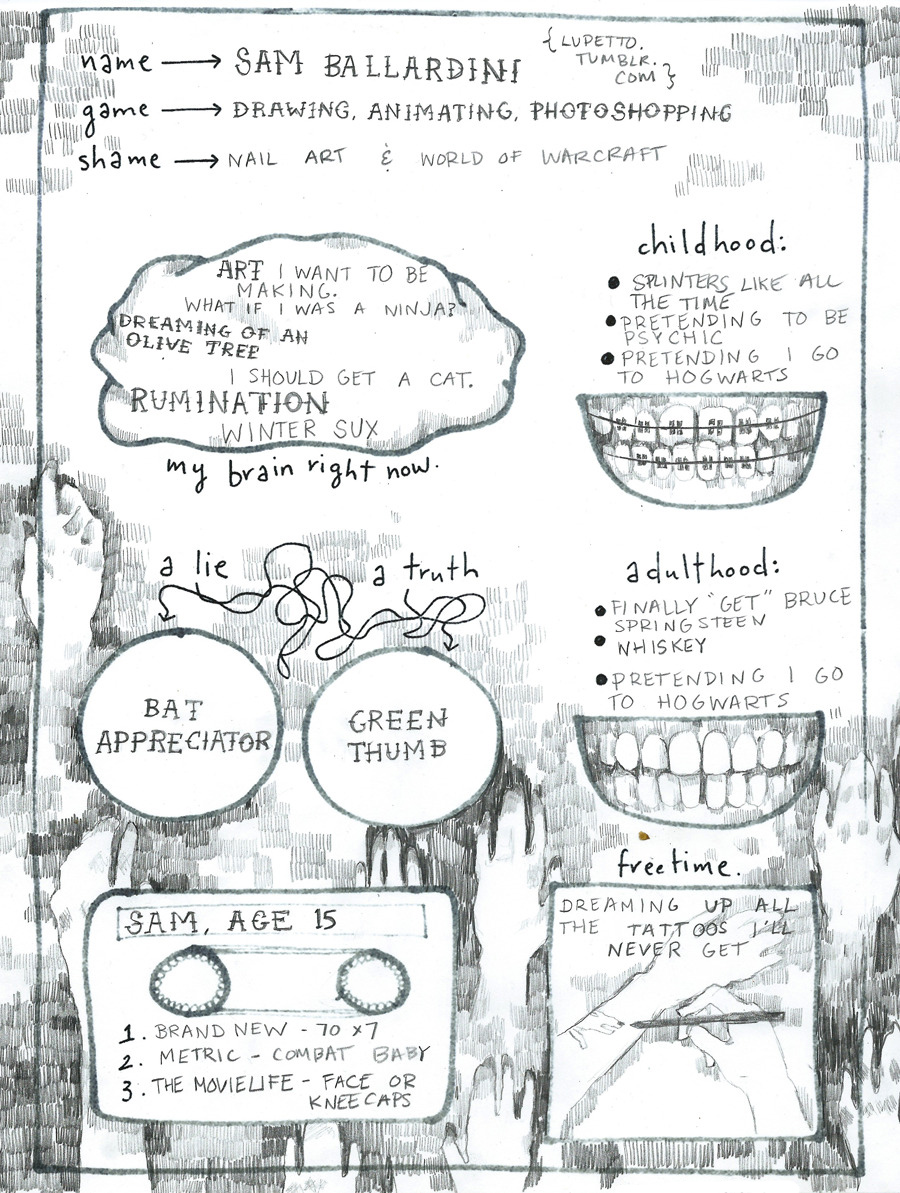 name → SAM BALLARDINI
{LUPETTO.
TUMBLR.
COM}
game → DRAWING, ANIMATING, PHOTOSHOPPING
shame → NAIL ART & WORLD OF WARCRAFT
ART I WANT TO BE
MAKING.
WHAT IF I WAS A NINJA?
DREAMING OF AN
OLIVE TREE
I SHOULD GET A CAT.
RUMINATION
WINTER SUX
my brain right now.
childhood:
• SPLINTERS LIKE ALL
THE TIME
• PRETENDING TO BE
PSYCHIC
• PRETENDING I GO
TO HOGWARTS
a lie
a truth
BAT
APPRECIATOR
GREEN
THUMB
adulthood:
• FINALLY "GET" BRUCE
SPRINGSTEEN
• WHISKEY
• PRETENDING I GO
TO HOGWARTS
SAM, AGE 15
1. BRAND NEW - 70 x 7
2. METRIC - COMBAT BABY
3. THE MOVIELIFE - FACE OR
KNEECAPS
freetime.
DREAMING UP ALL
THE TATTOOS I'LL
NEVER GET